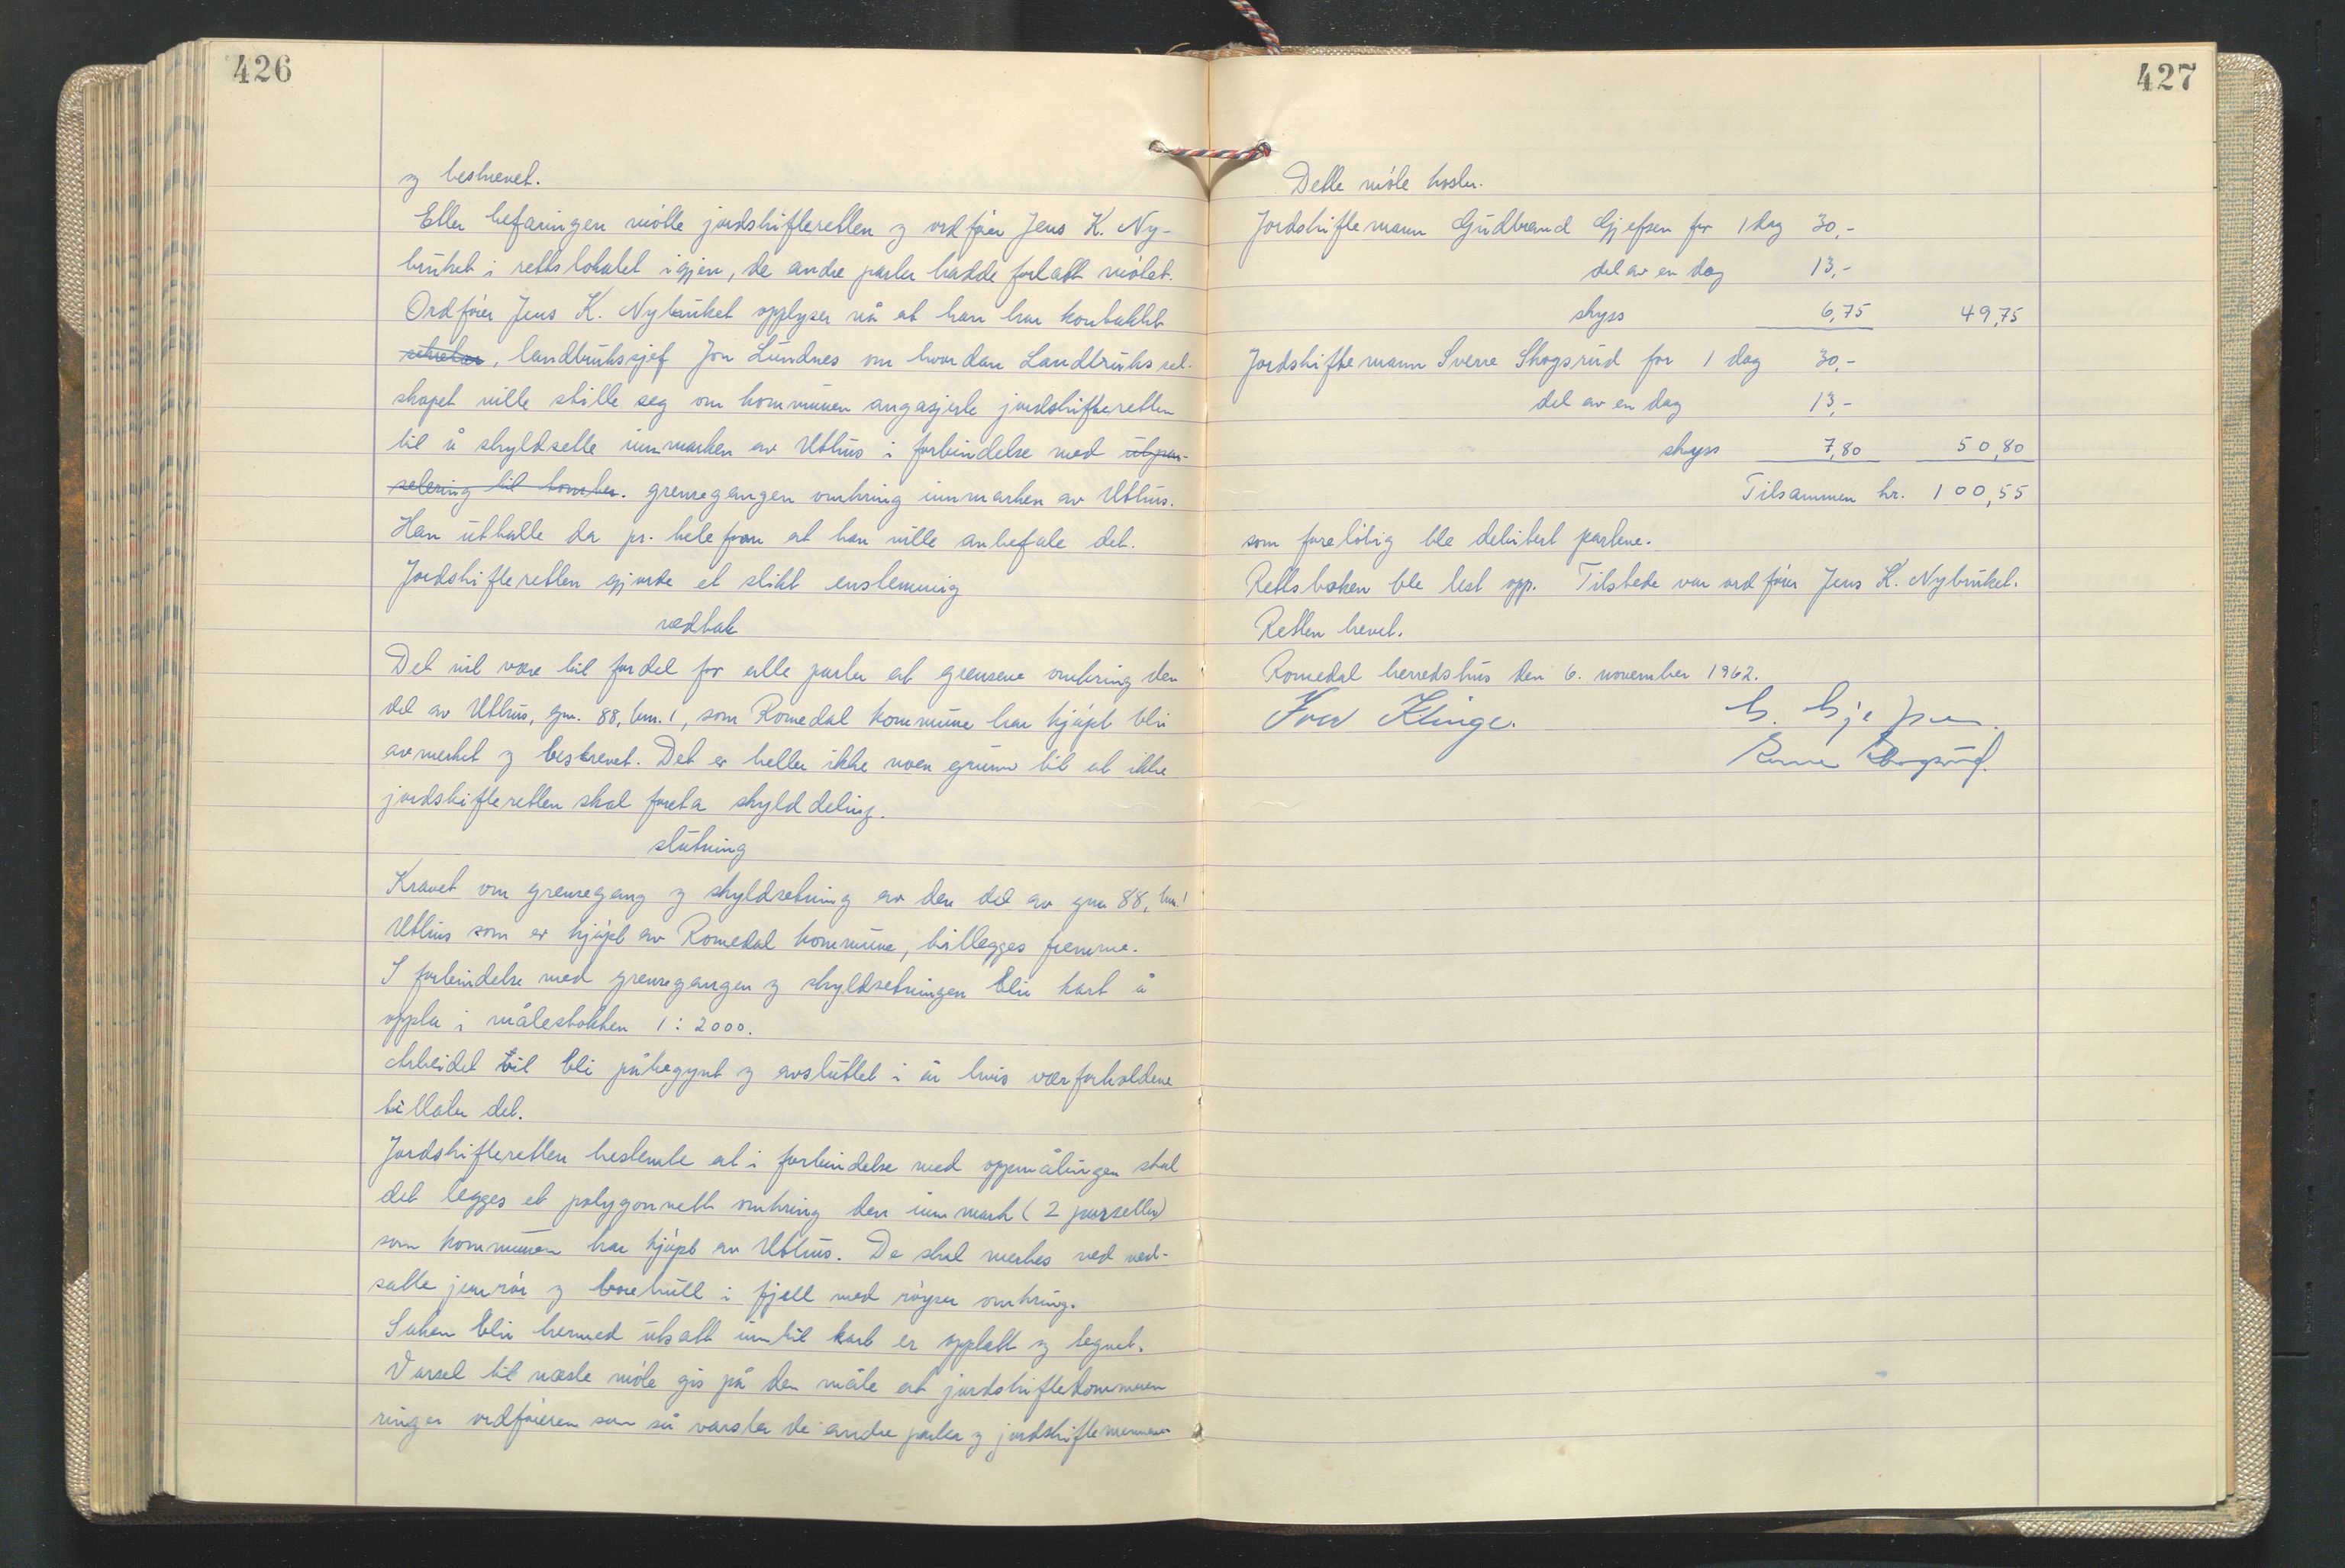 426
og beskrevet.
Etter befaringen møtte jordskifteretten og ordfører Jens K. Ny-
bruket i rettslokalet igjen, de andre parter hadde forlatt møtet.
Ordfører Jens K. Nybruket opplyser nå at han har kontaktet
sekretær, landbrukssjef Jon Lundnes om hvordan Landbrukssel-
skapet ville stille seg om kommunen angasjerte jordskifteretten
til å skyldsette innmarken av Uthus i forbindelse med utpar-
selering til tomter. grensegangen omkring innmarken av Uthus.
Han uttalte da pr. telefon at han ville anbefale det.
Jordskifteretten gjorde et slikt enstemmig
vedtak
Det vil være til fordel for alle parter at grensene omkring den
del av Uthus, gnr. 88, bnr. 1, som Romedal kommune har kjøpt blir
avmerket og beskrevet. Det er heller ikke noen grunn til at ikke
jordskifteretten skal foreta skylddeling.
slutning
Kravet om grensegang og skyldsetning av den del av gnr 88, bnr. 1
Uthus som er kjøpt av Romedal kommune, tillegges fremme.
I forbindelse med grensegangen og skyldsetningen blir kart å
oppta i målestokken 1:2000.
Arbeidet vil bli påbegynt og avsluttet i år hvis værforholdene
tillater det.
Jordskifteretten bestemte at i forbindelse med oppmålingen skal
det legges et polygonnett omkring den innmark (2 parseller)
som kommunen har kjøpt av Uthus. De skal merkes ved ned-
satte jernrør og borehull i fjell med røyser omkring.
Saken blir hermed utsatt inntil kart er opptatt og tegnet.
Varsel til neste møte gis på den måte at jordskiftedommeren
ringer ordføreren som så varsler de andre parter og jordskiftemennene
427
Dette møte koster.
Jordskiftemann Gudbrand Gjefsen for 1 dag 30,-
del av en dag 13,-
skyss 6,75 49,75
Jordskiftemann Sverre Skogsrud for 1 dag 30,-
del av en dag 13,-
skyss 7,80 50,80
Tilsammen kr. 100,55
som foreløbig ble debitert partene.
Rettsboken ble lest opp. Tilstede var ordfører Jens K. Nybruket.
Retten hevet.
Romedal herredshus den 6. november 1962.
Ivar Klinge. G. Gjefsen.
Sverre Skogsrud.